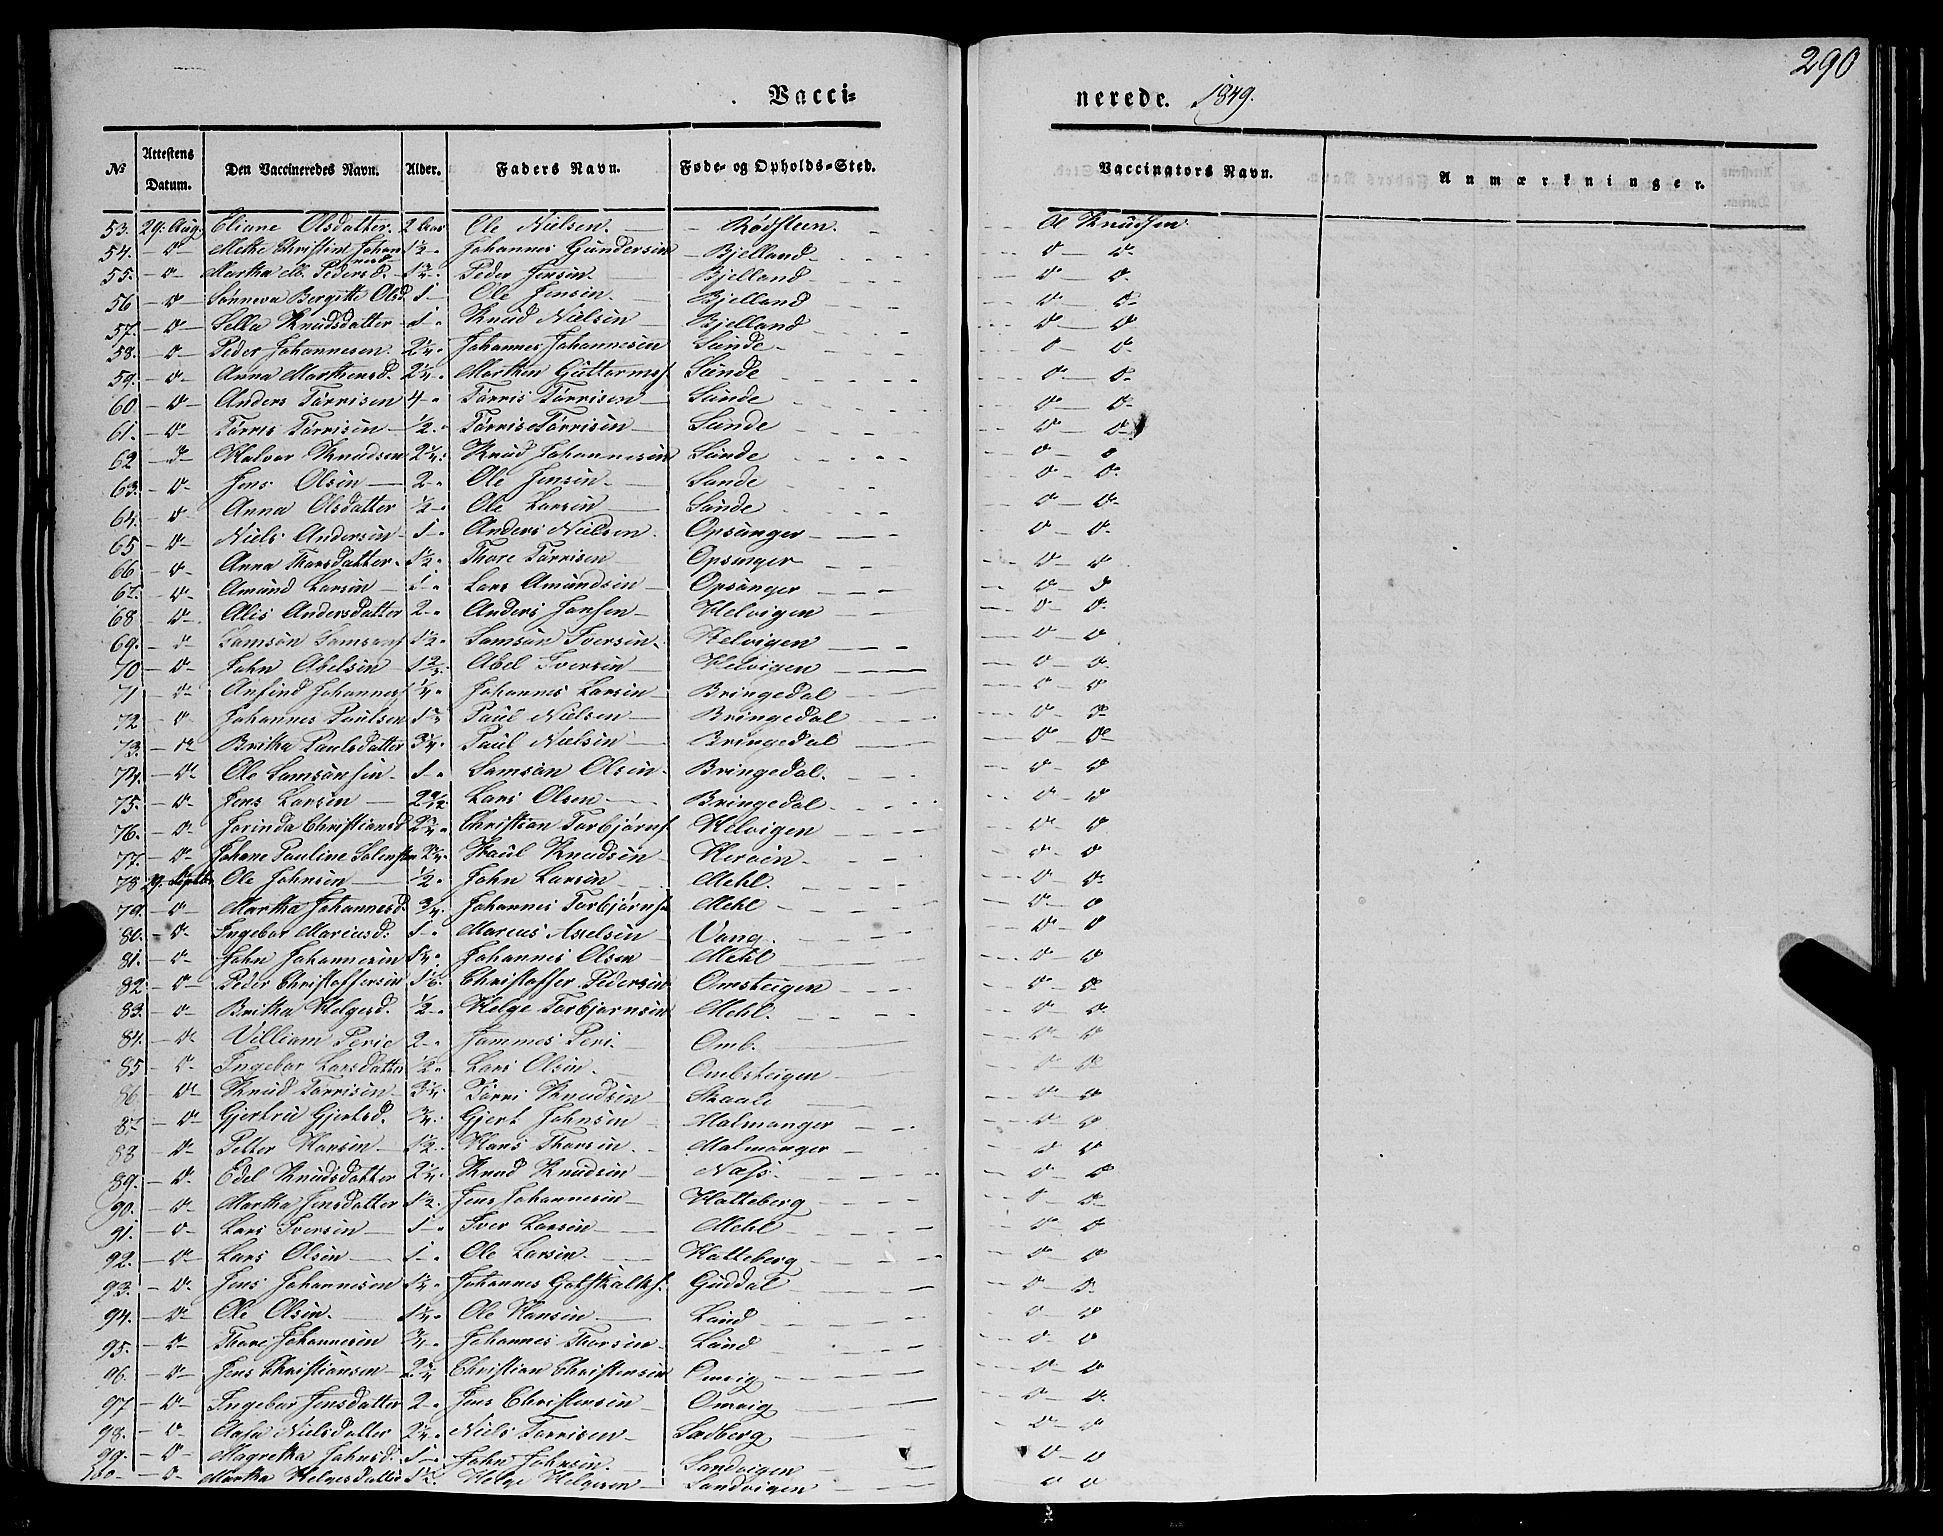 290
Vacci= nerede. 1849.
No Attestens Datum. Den Vaccineredes Navn. Alder. Faders Navn. Føde- og Opholds-Sted. Vaccinators Navn. Anmærkninger.
53. 29. Aug. Eliane Olsdatter. 2 Aar Ole Nielsen. Rødsteen. Knudsen
54. - d - Methe Christine Johan 1½ Johannes Gundersen Bjelland d d
55. - d - Martha M. Pedersd. Peder Jensen. Bjelland d d
56 - d - Sønneva Bergitte Olsd. 1 - Ole Jensen. Bjelland d d
57. - d - Sella Knudsdatter 1 - Knud Nielsen Bjelland d d
58. - d - Peder Johannesen. 2¼ Johannes Johannesen Sunde d d
59. - d - Anna Marthensd. 2¼ Marthen Guttormss. Sunde d d
60 - d - Anders Tørrisen 4 - Tørris Tørrisen Sunde d d
61. - d - Tørris Tørrisen ½ Tørris Tørrisen Sunde d d
62 - d - Halvor Knudsen 2¼ Knud Johannesen Sunde d d
63. - d - Jens Olsen 2 - Ole Jensen. Sunde d d
64. - d - Anna Olsdatter ½ Ole Larsen Sunde d d
65 - d - Niels Andersen 1 - Anders Nielsen. Opsanger d d
66 - d - Anna Thoresdatter 1½ Thore Tørrisen Opsanger d d
67. - d - Amund Larsen 1 - Lars Amundsen Opsanger d d
68 - d - Alis Andersdatter 2 - Anders Jansen Helvigen d d
69. - d - Samson Samsons. 1½ Samson Iversen. Helvigen d d
70 - d - John Abelsen Abel Iversen Helvigen d d
71 - d - Anfind Johanness. ¼ Johannes Larsen Bringedal d d
72 - d - Johannes Paulsen Paul Nielsen Bringedal d d
73. - d - Britha Paulsdatter 3¼ Paul Nielsen Bringedal d d
74. - d - Ole Samsonsen 1 - Samson Olsen. Bringedal. d d
75. - d - Jens Larsen Lars Olsen Bringedal. d d
76. - d - Jorinda Christiansd. Christian Torbjørns. Helvigen d d
77. - d - Johane Pauline Knudsen Herøen d d
78 29. Septbr. Ole Johnsen ½ John Larsen Mehl. d d
79. - d - Martha Johannesd. ¾ Johannes Torbjørns. Mehl d d
80. - d - Ingebor Mariusd. 1 - Marcus Axelsen Vang. d d
81. - d - John Johannesen 1¼ Johannes Olsen Mehl d d
82. - d - Peder Christoffersen 1⅙ Christoffer Pedersen Omsteigen d d
83. - d - Britha Helgesd. ½ Helge Torbjørnsen Mehl. d d
84. - d - Villiam Perie 2 - Jammes Peri Omb. d d
85 - d - Ingebor Larsdatter ½ Lars Olsen. Ombsteigen d d
86. - d - Knud Tørrisen 3¼ Tørri Knudsen Skaale d d
87 - d - Gjertru Gjertsd. ¾ Gjert Johnsen Malmanger d d
88 - d - Petter Hansen 1½ Hans Thorsen Malmanger d d
89. - d - Edel Knudsdatter 2¼ Knud Knudsen Næss. d d
90. - d - Martha Jensdatter 1½ Jens Johannesen Hatteberg d d
91. - d - Lars Iversen 1 - Iver Larsen Mehl d d
92. - d - Lars Olsen 1 - Ole Larsen. Hatteberg d d
93. - d - Jens Johannesen 1¼ Johannes Gotskalks. Guddal d d
94. - d - Ole Olsen. 1¼ Ole Hansen Lund d d
95. - d - Thore Johannesen ¾ Johannes Thorsen Lund d d
96. - d - Jens Christiansen Christian Christensen Omvig d d
97 - d - Ingebor Jensdatter 2 - Jens Christensen Omvig d d
98. - d - Nielsdatter 2¼ Niels Tørrisen Sætberg d d
99. - d - Magretha Johnsd. 1 - John Johnsen. Sandvigen d d
100 - d - Martha Helgesdatter 1½ Helge Helgesen Sandvigen d d